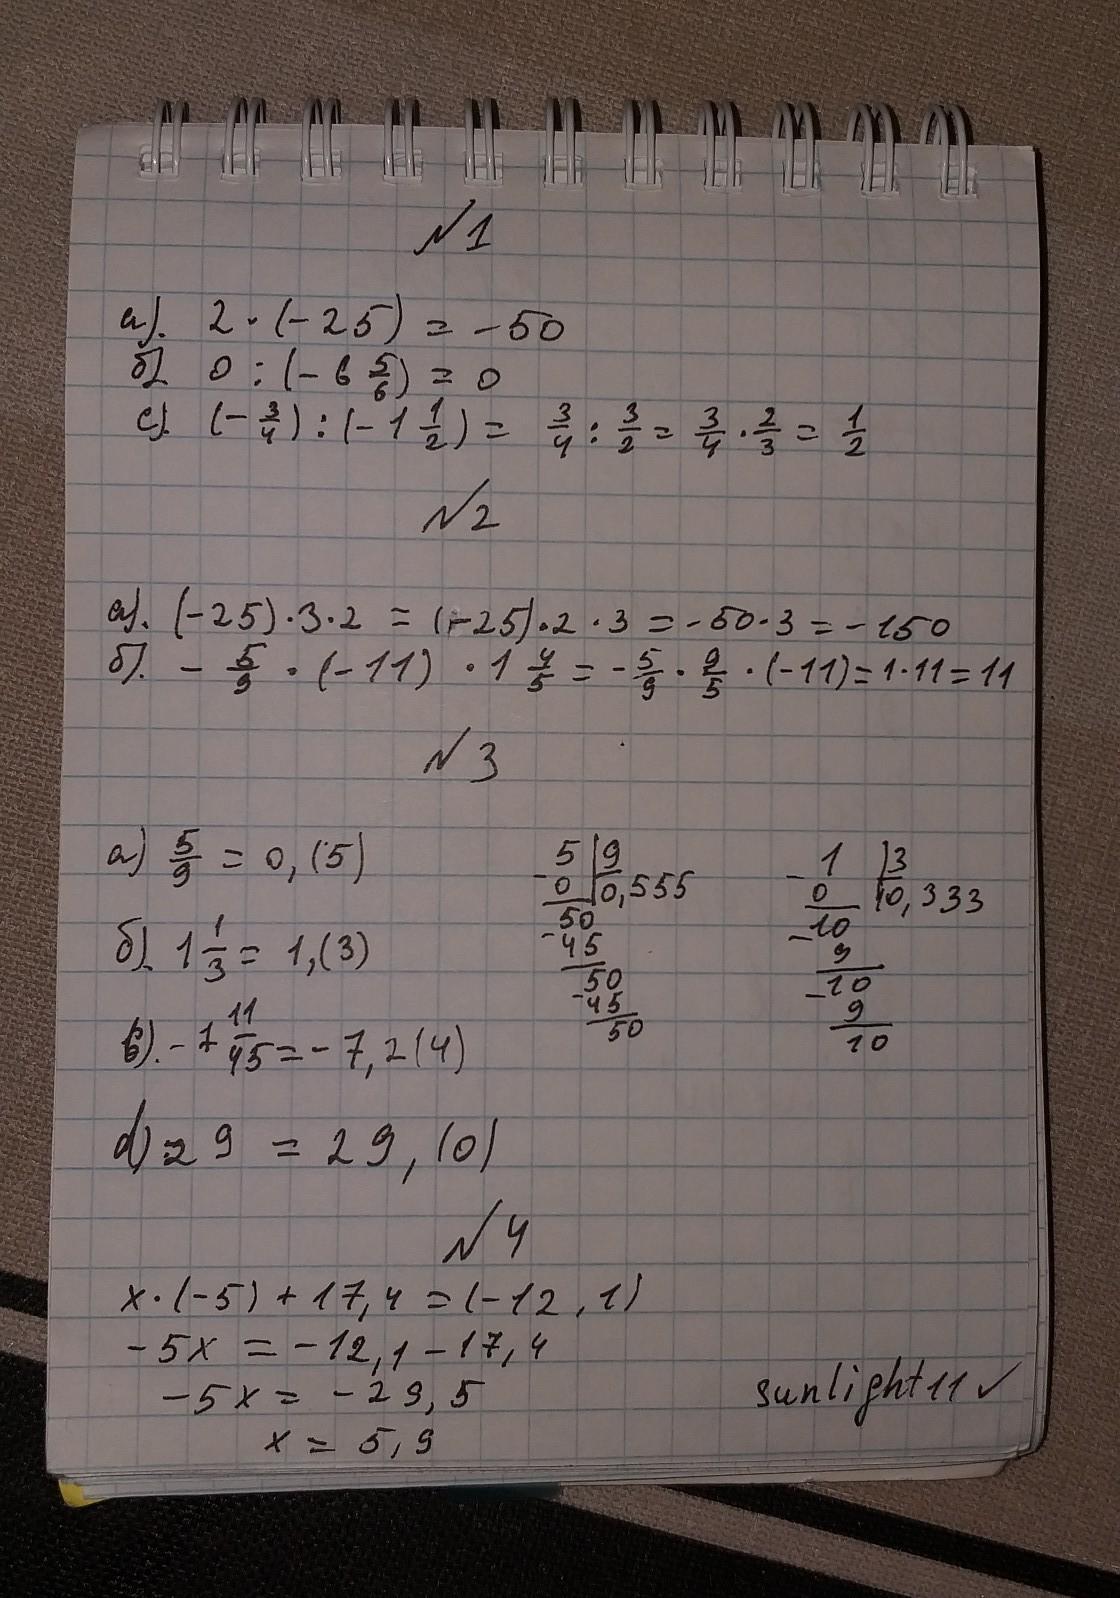 №1
а). 2 · (-25) = -50
б) 0 : (-6 5/6) = 0
с). (-3/4) : (-1 1/2) = 3/4 : 3/2 = 3/4 · 2/3 = 1/2
№2
а). (-25) · 3 · 2 = (-25) · 2 · 3 = -50 · 3 = -150
б). - 5/9 · (-11) · 1 4/5 = - 5/9 · 9/5 · (-11) = 1 · 11 = 11
№3
а) 5/9 = 0,(5)
б). 1 1/3 = 1,(3)
в). -7 11/45 = -7,2(4)
d) 29 = 29,(0)
5 | 9
- 0 | 0,555
50
- 45
50
- 45
50
1 | 3
- 0 | 0,333
10
- 9
10
- 9
10
№4
x · (-5) + 17,4 = (-12,1)
-5x = -12,1 - 17,4
-5x = -29,5
x = 5,9
sunlight11 ✓